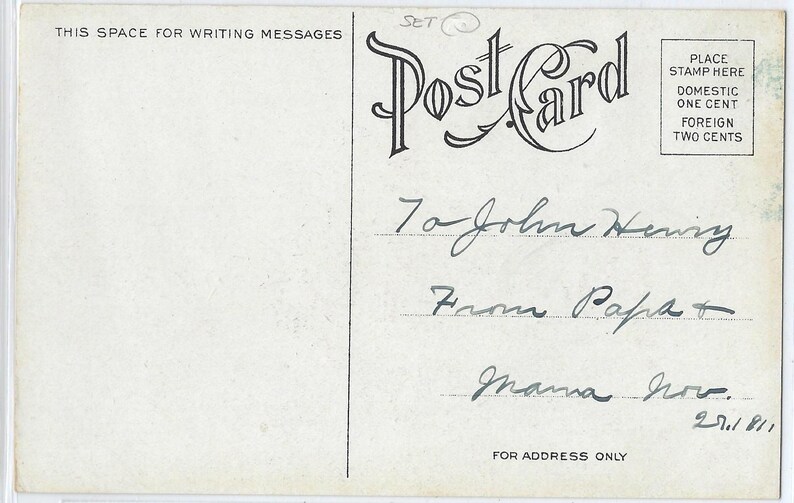 SET
THIS SPACE FOR WRITING MESSAGES
Post Card
PLACE
STAMP HERE
DOMESTIC
ONE CENT
FOREIGN
TWO CENTS
To John Henry
From Papa +
Mama Nov.
FOR ADDRESS ONLY